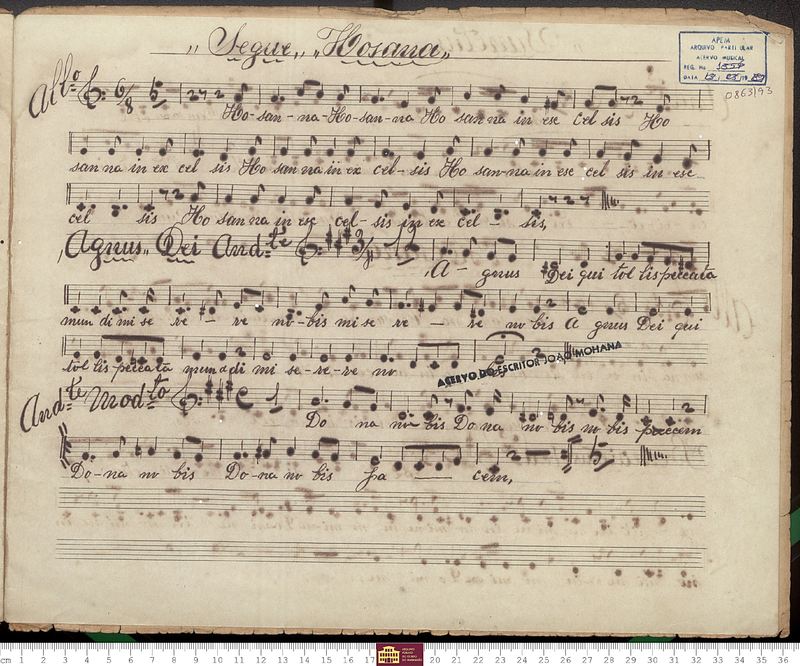 „ Segue „ „ Hosana „
APEM
ARQUIVO PARTICULAR
ACERVO MUSICAL
REG. No
DATA
0863/93
Allo 6/8
Ho-san-na-Ho-san-na Ho san na in esc cel sis Ho
san na in ex cel sis Ho san na in ex cel-sis Ho san-na in esc cel sis in esc
cel sis Ho san na in esc cel-sis in ex cel-sis,
„Agnus„ Dei And.te 3/8
A-gnus Dei qui tol lis peccata
mun di mi se re-re no-bis mi se re-re no bis A gnus Dei qui
tol lis peccata mun a di mi se-re-re no
ACERVO DO ESCRITOR JOÃO MOHANA
And.te Mod.to C
Do na no bis Do na no bis no bis paecem
Do-na no bis Do-na no bis pa cem,
cm 1 2 3 4 5 6 7 8 9 10 11 12 13 14 15 16 20 21 22 23 24 25 26 27 28 29 30 31 32 33 34 35 36